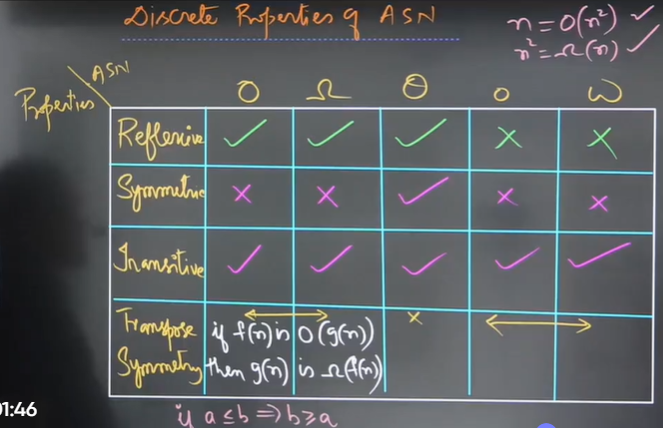 Discrete Properties of ASN
n = O(n²) ✓
n² = Ω(n) ✓
ASN
Properties
O Ω Θ o ω
Reflexive ✓ ✓ ✓ × ×
Symmetric × × ✓ × ×
Transitive ✓ ✓ ✓ ✓ ✓
Transpose Symmetry ↔ × ↔
if f(n) is O(g(n))
then g(n) is Ω(f(n))
if a ≤ b ⇒ b ≥ a
01:46